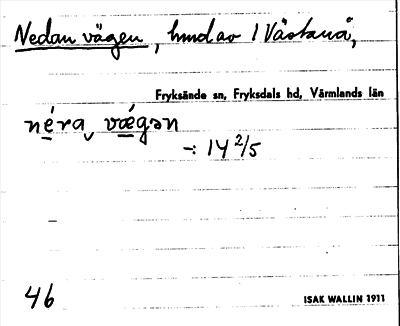 Nedan vägen, hmd av 1 Västanå,
Fryksände sn, Fryksdals hd, Värmlands län
néra vǽgən
-: 14 2/5
46
ISAK WALLIN 1911